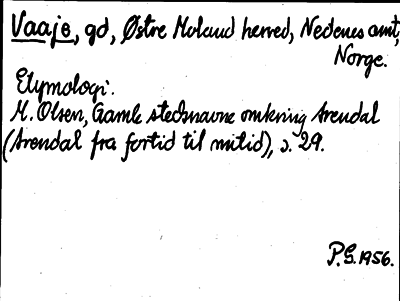 Vaaje, gd, Østre Moland herred, Nedenes amt,
Norge.
Etymologi.
M. Olsen, Gamle stedsnavne omkring Arendal
(Arendal fra fortid til nutid), s. 29.
P.G. 1956.